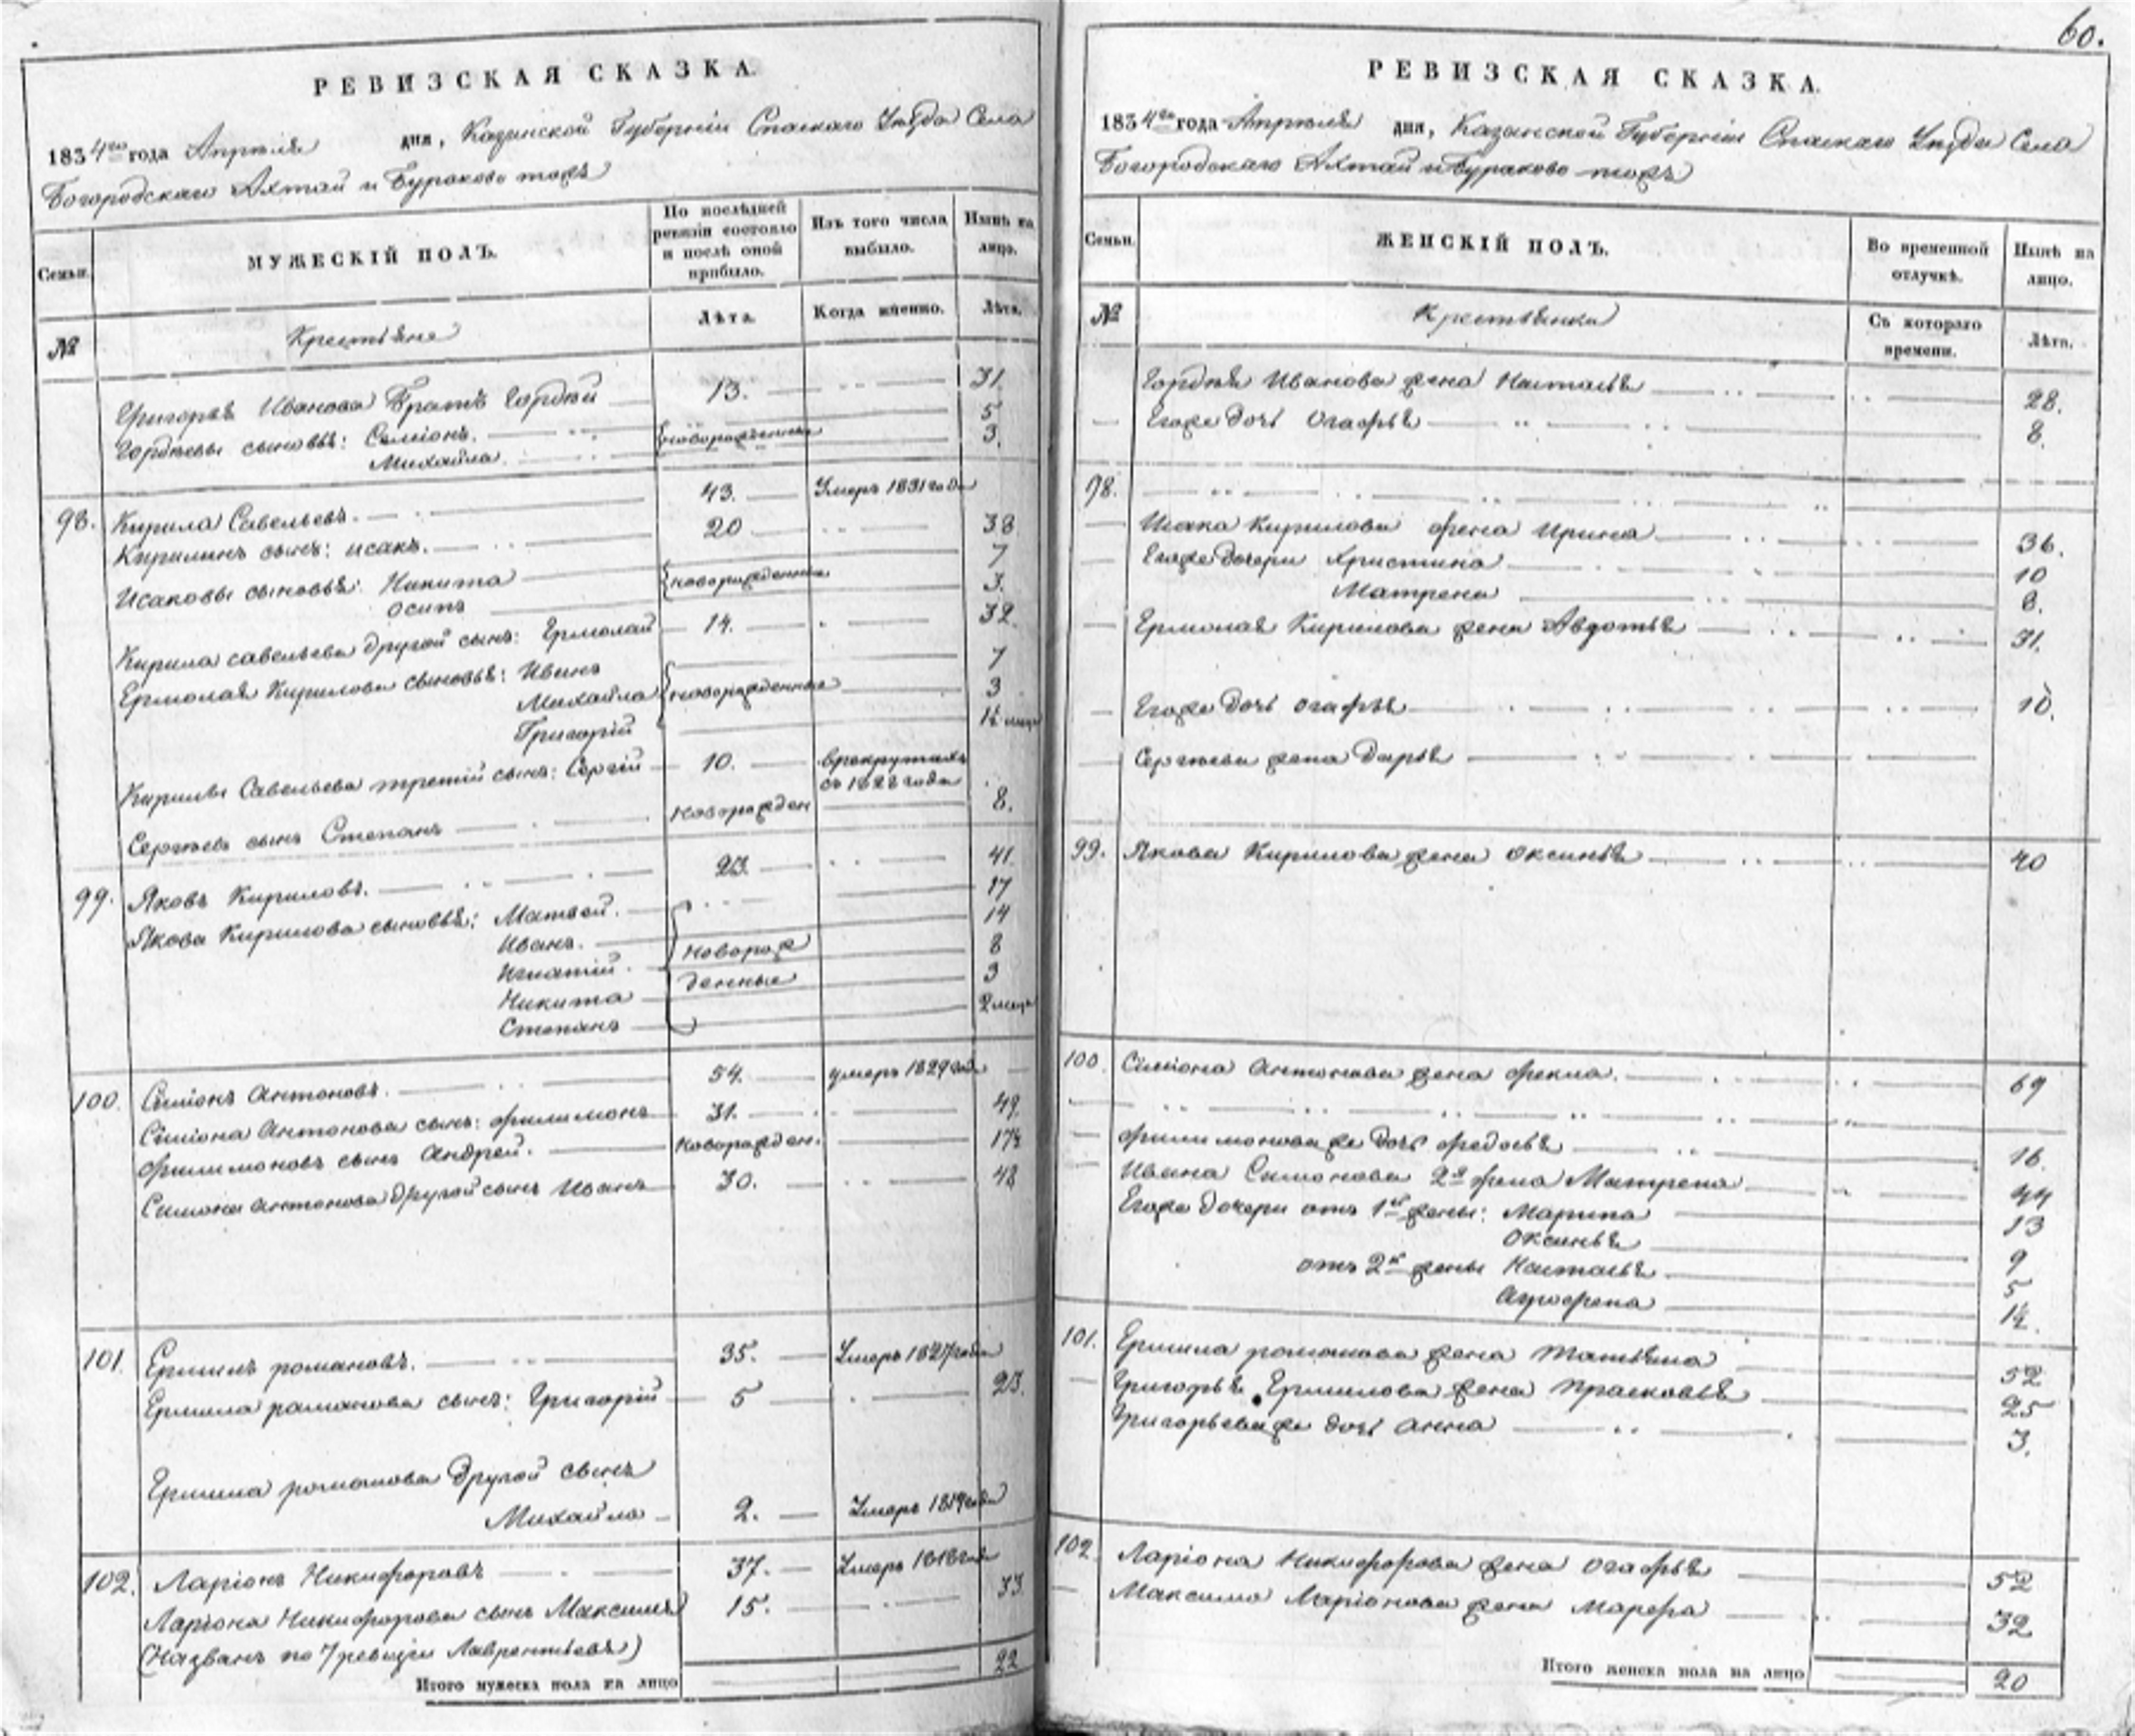 60.
РЕВИЗСКАЯ СКАЗКА.
1834го года Апреля дня, Казанской Губернии Спаскаго Уезда Села
Богородскаго Ахтай и Бураково тожъ
Семьи.
МУЖЕСКІЙ ПОЛЪ.
По послѣдней ревизіи состояло и послѣ оной прибыло.
Изъ того числа выбыло.
Нынѣ на лицо.
№
Крестьяне
Лѣта.
Когда именно.
Лѣта.
Григорья Иванова Братъ Гордѣй 13. 31.
Гордѣевы сыновья: Семіонъ. новорожденные 5
Михайла 3.
98. Кирила Савельевъ. 43. Умеръ 1831 года
Кирилинъ сынъ: исакъ. 20 38
Исаковы сыновья: Никита новорожденные 7
осипъ 3.
Кирила савельева другой сынъ: Ермолай 14. 32.
Ермолая Кирилова сыновья: Иванъ 7
Михайла новорожденные 3
Григорій 1½
Кирилы Савельева третій сынъ: Сергій 10. врекрутахъ
съ 1828 года
Сергѣевъ сынъ Степанъ новорожден 8.
99. Яковъ Кириловъ. 23. 41.
Якова Кирилова сыновья: Матвей. 17
Иванъ. новорож 14
Игнатій. денные 8
Никита 3
Степанъ 2 меца
100. Симіонъ Антоновъ. 54. умеръ 1829 года
Симіона Антонова сынъ: филимонъ 31. 49.
филимоновъ сынъ Андрей. новорожден. 17½
Симона антонова другой сынъ Иванъ 30. 48
101. Ермилъ романовъ. 35. Умеръ 1827 года
Ермила раманова сынъ: Григорій 5 23.
Ермила романова другой сынъ
Михайло 2. Умеръ 1819 года
102. Ларіонъ Никифоровъ 37. Умеръ 1818 года
Ларіона Никифорова сынъ Максимъ 15. 33
(Названъ по 7 ревизіи Лаврентьевъ)
Итого мужеска пола на лицо 22
РЕВИЗСКАЯ СКАЗКА.
1834го года Апреля дня, Казанской Губерніи Спаскаго Уезда Села
Богородскаго Ахтай и Бураково тожъ
Семьи.
ЖЕНСКІЙ ПОЛЪ.
Во временной отлучкѣ.
Нынѣ на лицо.
№
Крестьянки
Съ котораго времени.
Лѣта.
Гордѣя Иванова жена Настасья 28.
Егоже дочь Огафья 8.
98.
Исака Кирилова жена Ирина 36.
Егоже дочери Христина 10
Матрена 8.
Ермолая Кирилова жена Авдотья 31.
Егоже дочь огафья 10.
Сергѣева жена Дарья
99. Якова Кирилова жена оксинья 40
100. Симіона Антонова жена фекла. 69
филимонова же дочь федосья 16.
Ивана Симонова 2я жена Матрена 44
Егоже дочери отъ 1й жены: Марина 13
Оксинья 9
отъ 2й жены Настасья 5
Агрофена 1½.
101. Ермила романова жена Татьяна 52
Григорья Ермилова жена Прасковья 25
Григорьева же дочь анна 3.
102. Ларіона Никифорова жена огафья 52
Максима Ларіонова жена Марфа 32
Итого женска пола на лицо 20